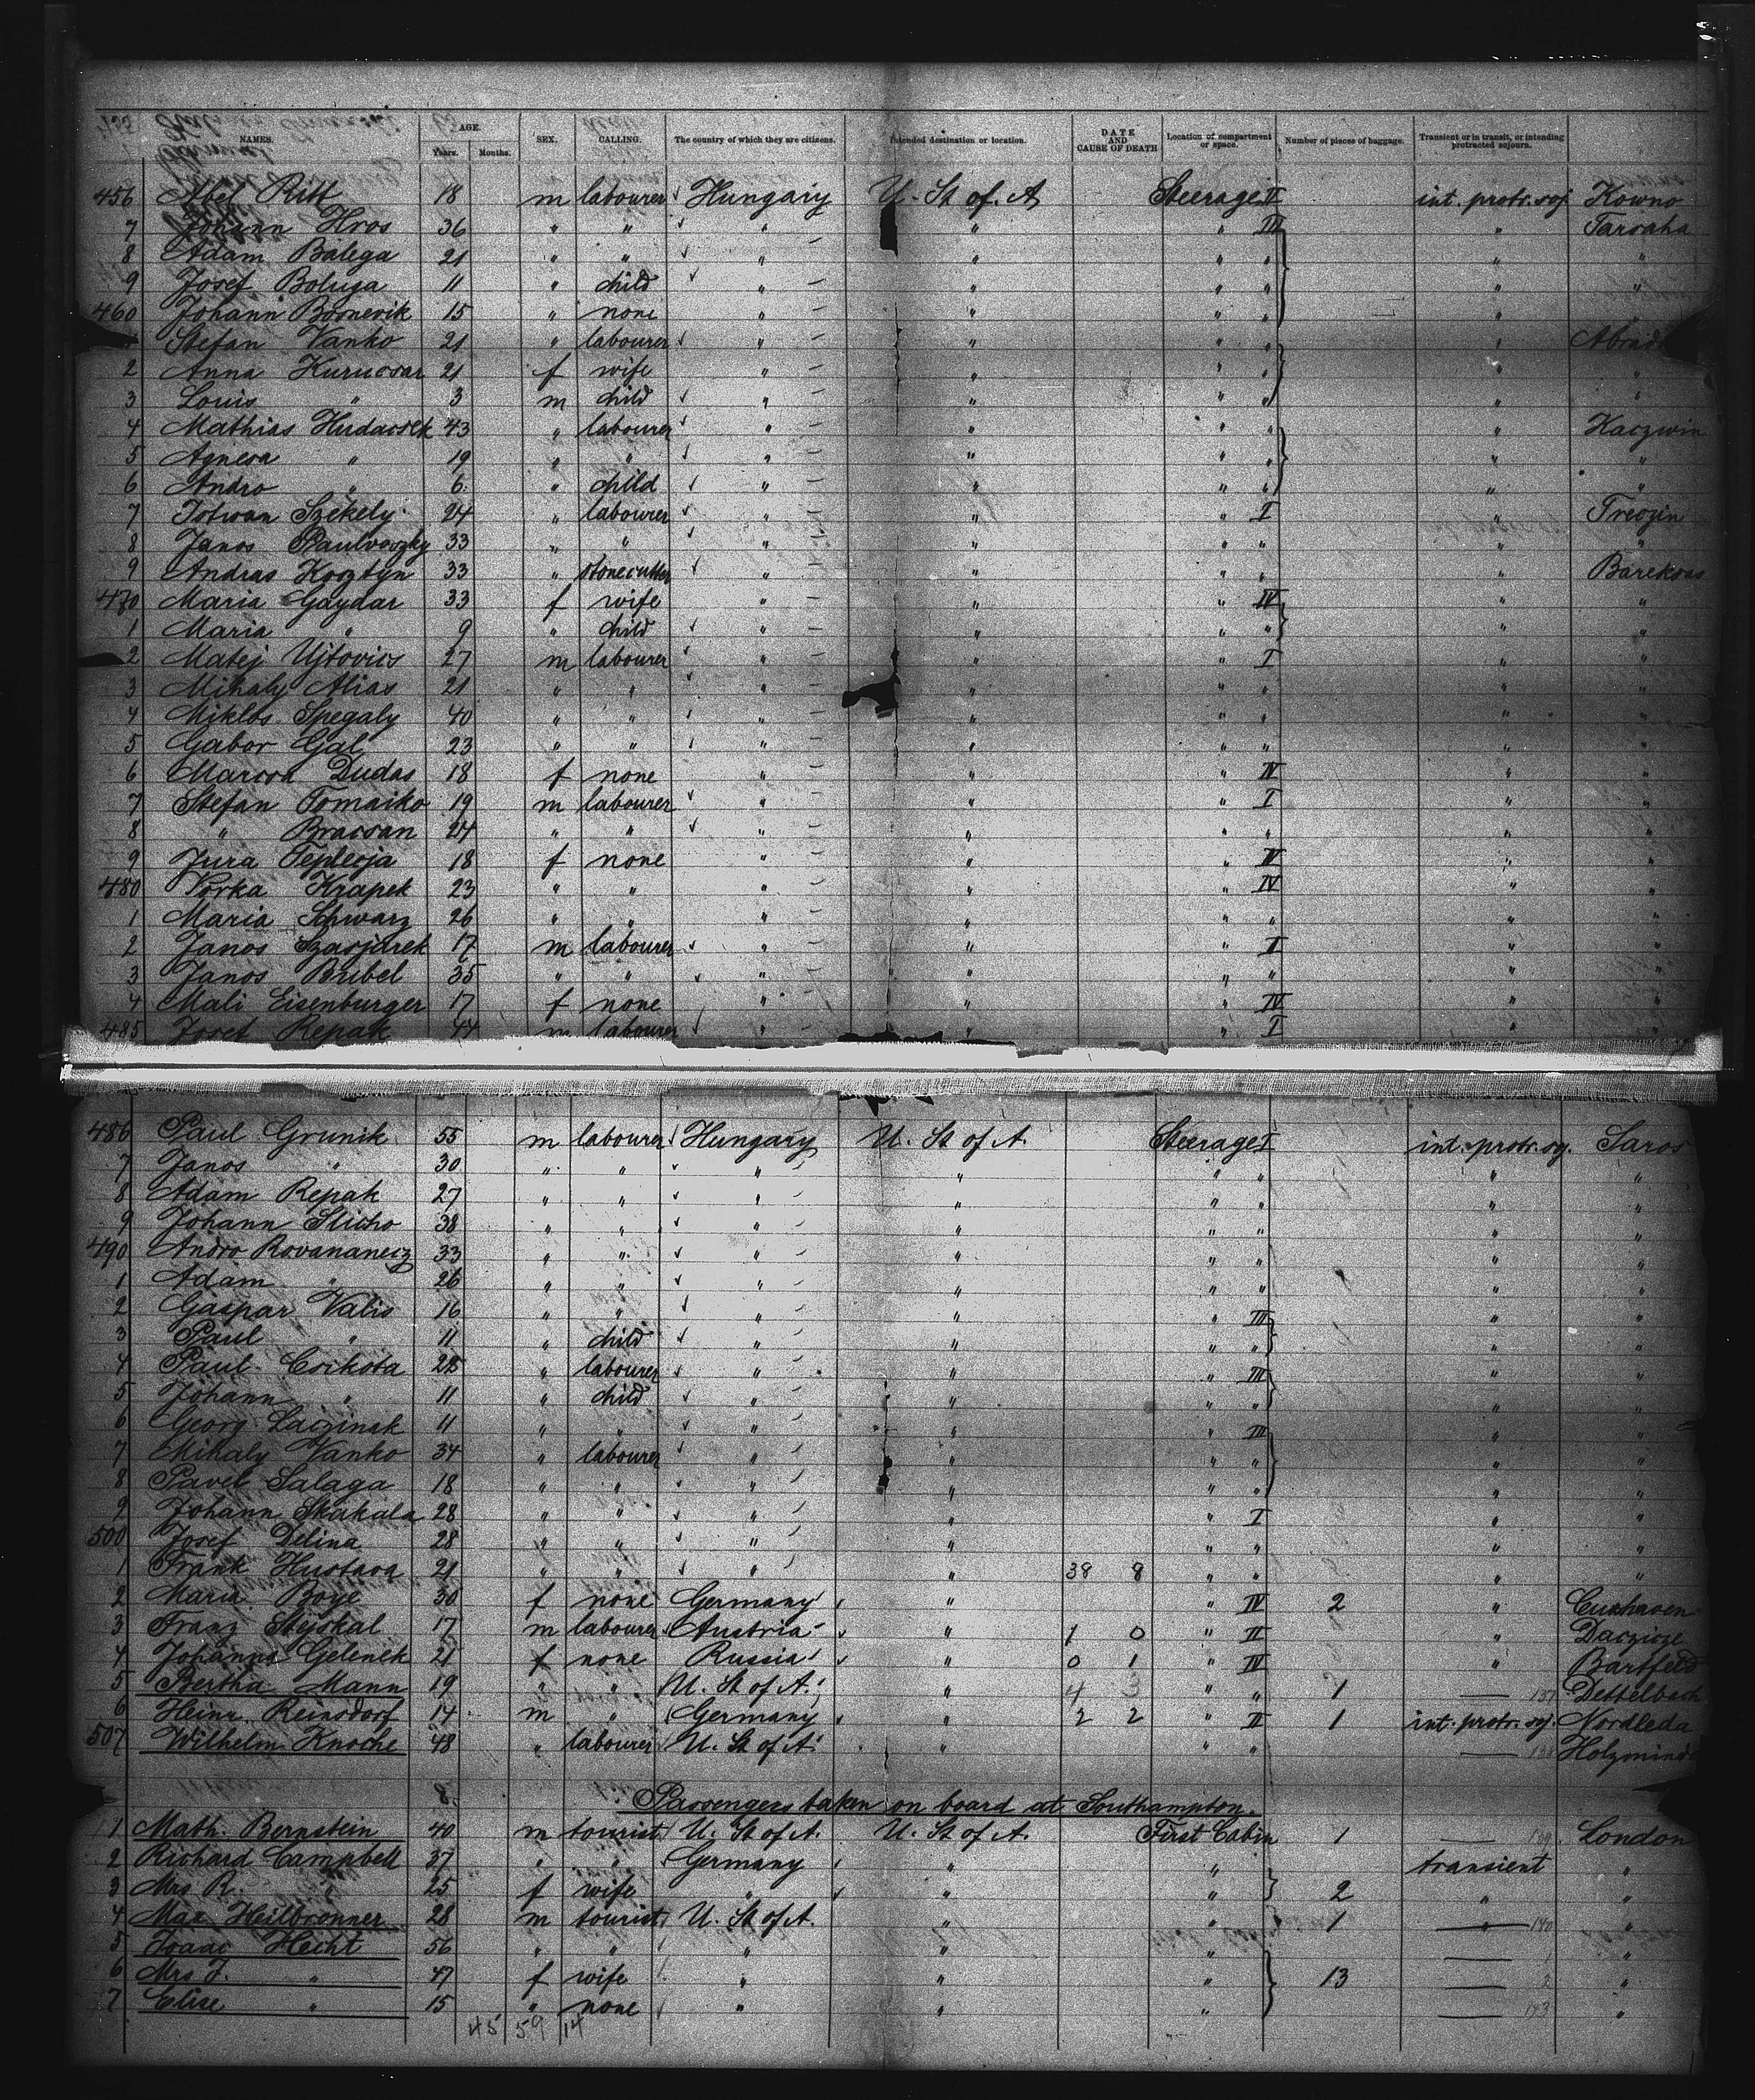 NAMES. AGE. Years. Months. SEX. CALLING. The country of which they are citizens. Intended destination or location. DATE AND CAUSE OF DEATH Location of compartment or space. Number of pieces of baggage. Transient or in transit, or intending protracted sojourn.
456 Abel Ritt 18 m labourer Hungary U. St of. A Steerage II int. protr. soj Kowno
7 Johann Hros 36 " " " " " III " Tarcaha
8 Adam Balega 21 " " " " " " " "
9 Josef Boluga 11 " child " " " " " "
460 Johann Bosnevik 15 " none " " " " " "
Stefan Vanko 21 " labourer " " " " "
2 Anna Kurucsar 21 f wife " " " " " "
3 Louis " 3 m child " " " " " "
4 Mathias Hudacsek 43 " labourer " " " " " Kaczwin
5 Agnesa " 19 " " " " " " " "
6 Andro " 6 " child " " " " " "
7 Istwan Székely 24 " labourer " " " I " Treozin
8 Janos Paulvoszky 33 " " " " " " " "
9 Andras Kosztyn 33 " stonecutter " " " " " Barekoas
470 Maria Gaydar 33 f wife " " " IV " "
1 Maria " 9 " child " " " " " "
2 Matej Ujtovics 27 m labourer " " " I " "
3 Mihaly Alias 21 " " " " " " " "
4 Miklos Spegaly 40 " " " " " " " "
5 Gabor Gal 23 " " " " " " " "
6 Marcsa Dudas 18 f none " " " IV " "
7 Stefan Tomaiko 19 m labourer " " " I " "
8 " Bracsan 24 " " " " " " " "
9 Jura Teplecja 18 f none " " " IV " "
480 Vorka Krapek 23 " " " " " IV " "
1 Maria Schwarz 26 " " " " " " " "
2 Janos Szasjarek 17 m labourer " " " I " "
3 Janos Bubel 35 " " " " " " " "
4 Mali Eisenburger 17 f none " " " IV " "
485 Josef Repak 44 m labourer " " " I " "
486 Paul Grunik 55 m labourer Hungary U. St of A. Steerage I int. protr. soj. Saros
7 Janos " 30 " " " " " " " "
8 Adam Repak 27 " " " " " " " "
9 Johann Slicho 38 " " " " " " " "
490 Andro Rovananecz 33 " " " " " " " "
1 Adam " 26 " " " " " " " "
2 Gaspar Valis 16 " " " " " III " "
3 Paul " 11 " child " " " " " "
4 Paul Csikota 28 " labourer " " " III " "
5 Johann " 11 " child " " " " " "
6 Georg Laczinak 11 " " " " " III " "
7 Mihaly Vanko 34 " labourer " " " " " "
8 Pavel Salaga 18 " " " " " " " "
9 Johann Skakala 28 " " " " " I " "
500 Josef Delina 28 " " " " " " " "
1 Frank Hustava 21 " " " " 38 8 " " " "
2 Maria Boye 30 f none Germany " " IV 2 " Cuxhaven
3 Franz Stejskal 17 m labourer Austria " 1 0 " II " Daczicze
4 Johanna Gelenek 21 f none Russia " 0 1 " IV " Bartfeld
5 Bertha Mann 19 " " U. St of A. " 4 3 " " 1 137 Dettelbach
6 Heinr. Reinsdorf 14 m " Germany " 2 2 " II 1 int. protr. soj. Nordleda
507 Wilhelm Knoche 48 " labourer U. St of A. " " " 138
8.
Passengers taken on board at Southampton.
1 Math. Bernstein 40 m tourist U. St of A. U. St of A. First Cabin 1 139 London
2 Richard Campbell 37 " " Germany " " transient "
3 Mrs R. " 25 f wife " " " 2 " "
4 Max Heilbronner 28 m tourist U. St of A. " " 1 " 140 "
5 Isaac Hecht 56 " " " " " 1 "
6 Mrs I. " 47 f wife " " " 13 2 "
7 Elise " 15 " none " " " 143 "
45 59 14